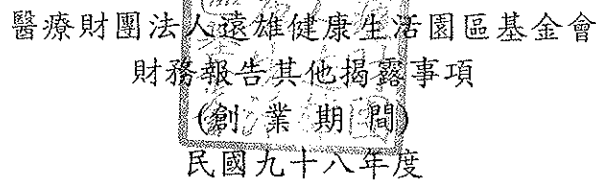 醫療財團法人遠雄健康生活園區基金會
財務報告其他揭露事項
(創業期間)
民國九十八年度